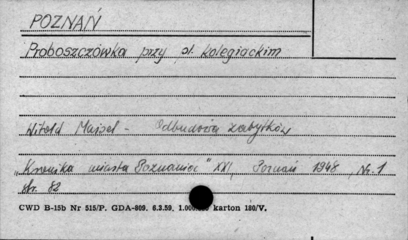 POZNAŃ
Proboszczówka przy pl. Kolegiackim
Witold Maisel - Odbudowa zabytków
„Kronika miasta Poznania" XXI, Poznań 1948, Nr. 1
str. 82
CWD B-15b Nr 515/P. GDA-809. 6.3.59. karton 180/V.